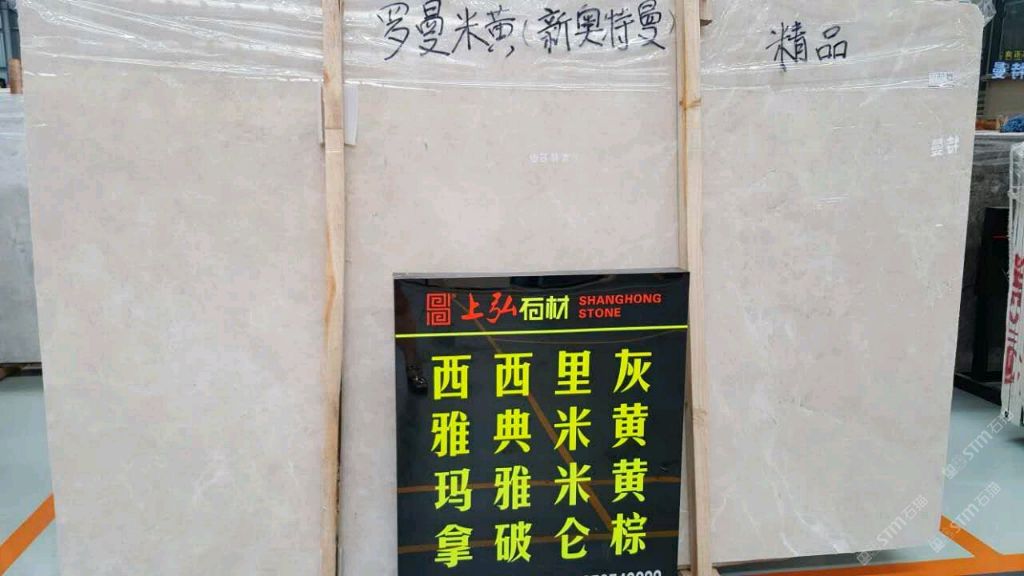 罗曼米黄(新奥特曼)
精品
上弘石材
SHANGHONG
STONE
西西里灰
雅典米黄
玛雅米黄
拿破仑棕
特曼
STM石猫
STM石猫
STM石猫